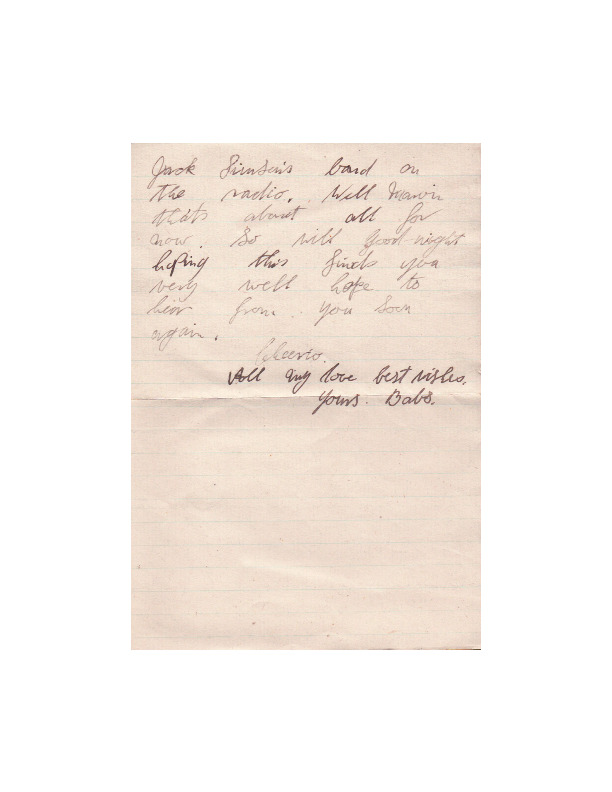 Jack Simson's band on
the radio. Well Marvin
that's about all for
now. So will good-night
hoping this finds you
very well hope to
hear from you soon
again.
Cheerio.
All my love best wishes.
Yours. Babs.